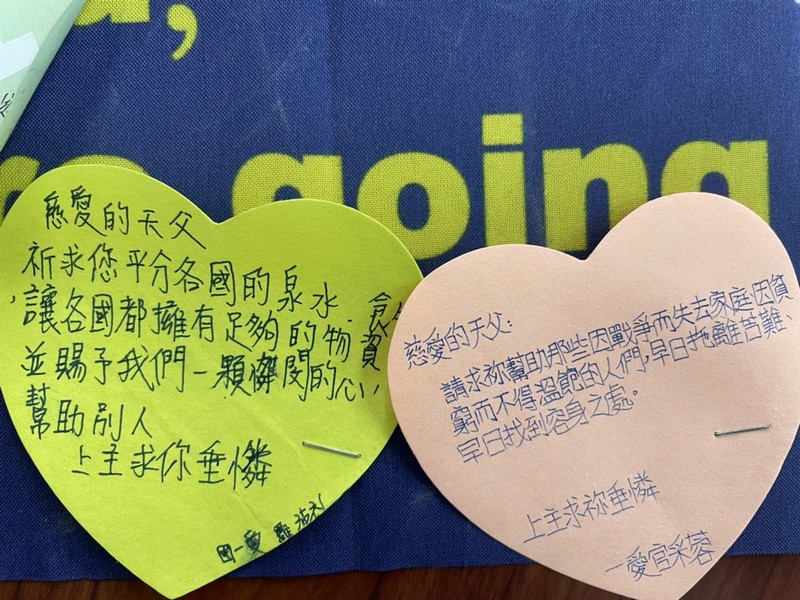 going
慈愛的天父
祈求您平分各國的泉水、食
，讓各國都擁有足夠的物資
並賜予我們一顆憐閔的心，
幫助別人
上主求你垂憐
國一愛 羅
慈愛的天父：
請求祢幫助那些因戰爭而失去家庭、因貧
窮而不得溫飽的人們，早日拖離苦難、
早日找到容身之處。
上主求祢垂憐
一愛官采蓉